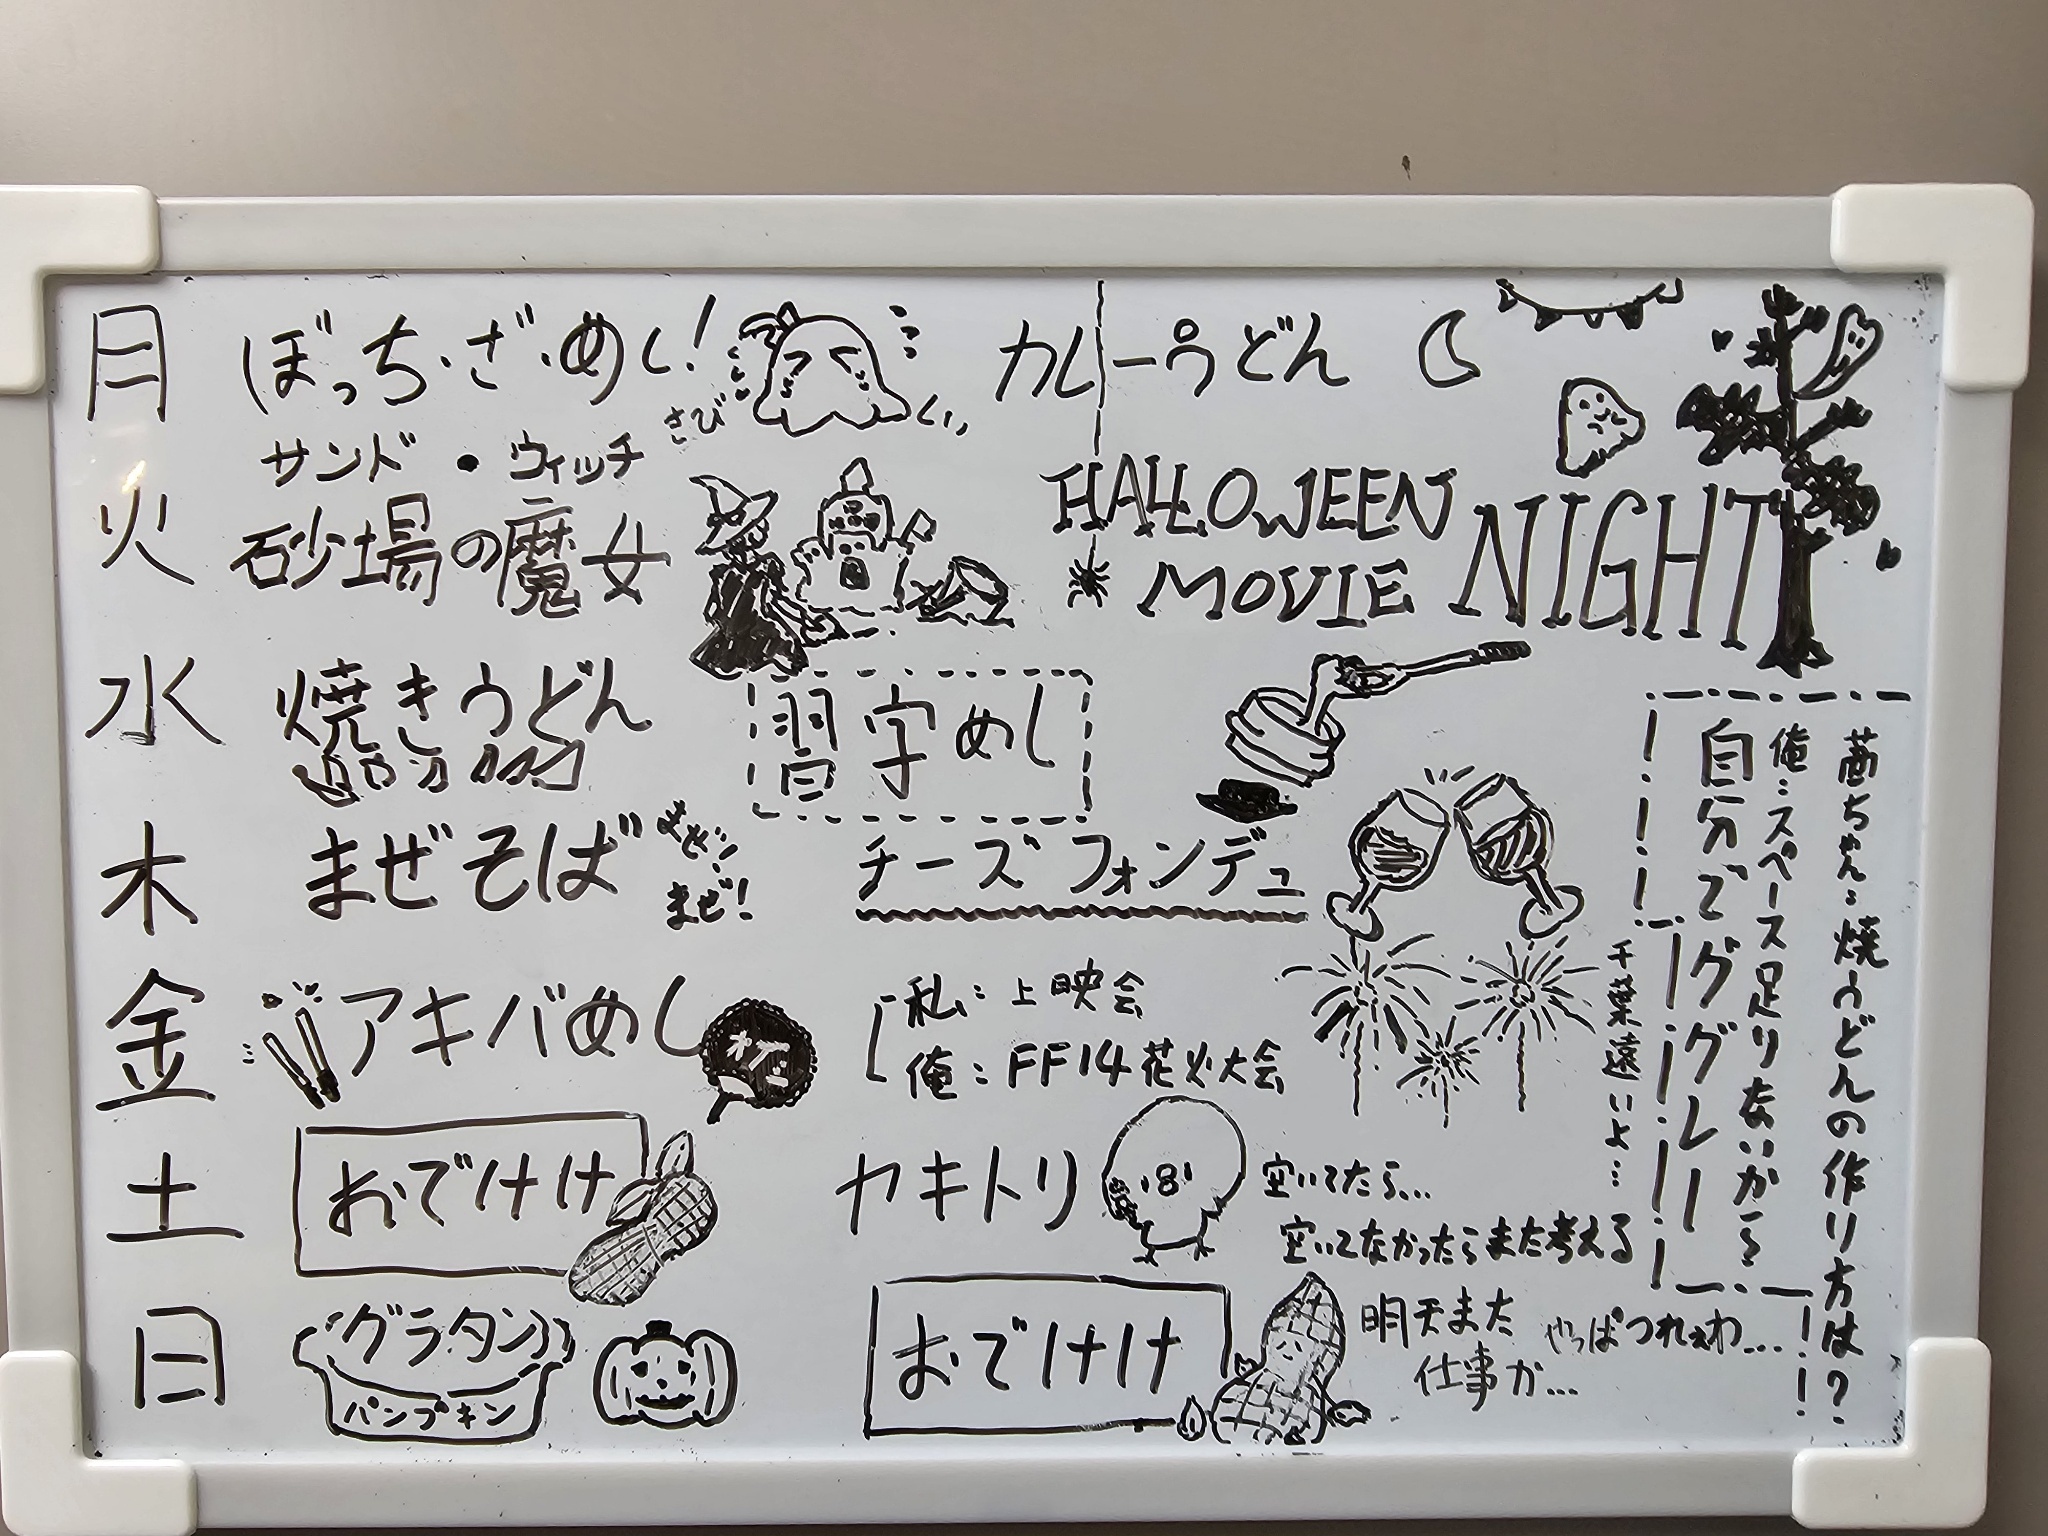 月 ぼっち・ざ・めし! カレーうどん
さびしい
サンド・ウィッチ
火 砂場の魔女
HALLOWEEN
MOVIE NIGHT
水 焼きうどん 習字めし
木 まぜそば まぜ! まぜ! チーズフォンデュ
金 アキバめし オイ
私:上映会
俺:FF14花火大会
千葉遠いよ…
土 おでけけ ヤキトリ 空いてたら…
空いてなかったらまた考える
日 グラタン おでけけ
パンプキン
明天また
仕事か…
やっぱつれぇわ…
茜ちゃん:焼うどんの作り方は?
俺:スペース足りないから
自分でググレー